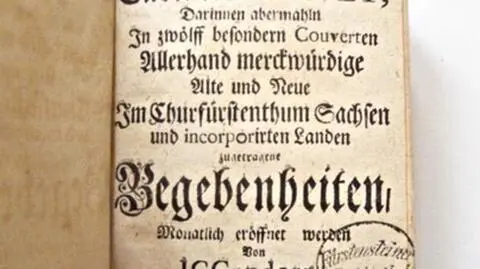 Darinnen abermahln
In zwölff besondern Couverten
Allerhand merckwürdige
Alte und Neue
Im Churfürstenthum Sachsen
und incorporirten Landen
zugetragene
Begebenheiten/
Monatlich eröffnet werden
Von
Fürstensteiner